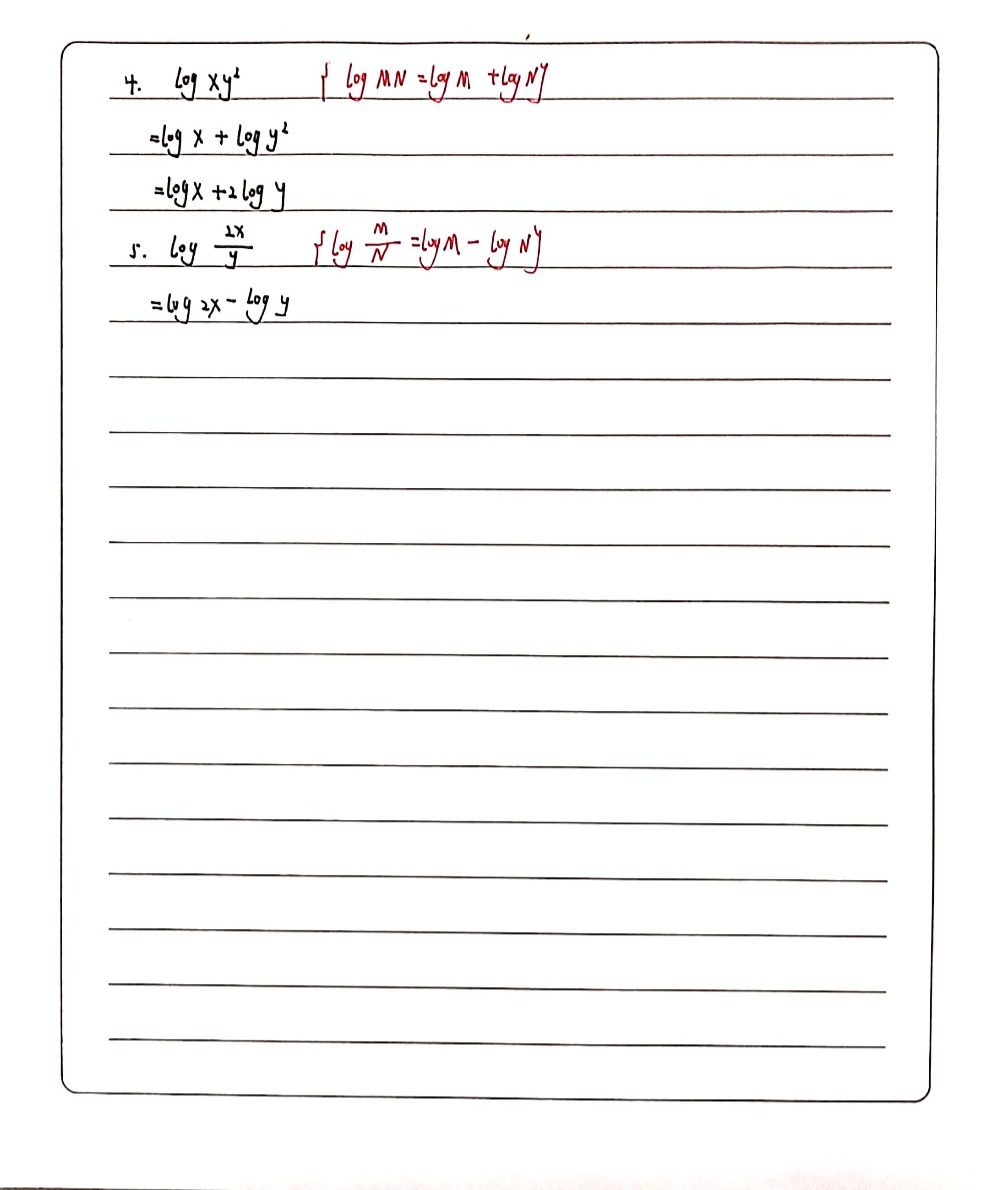 4. log xy² { log MN = log M + log N}
= log x + log y²
= log x + 2 log y
5. log 2x/y { log M/N = log M - log N}
= log 2x - log y